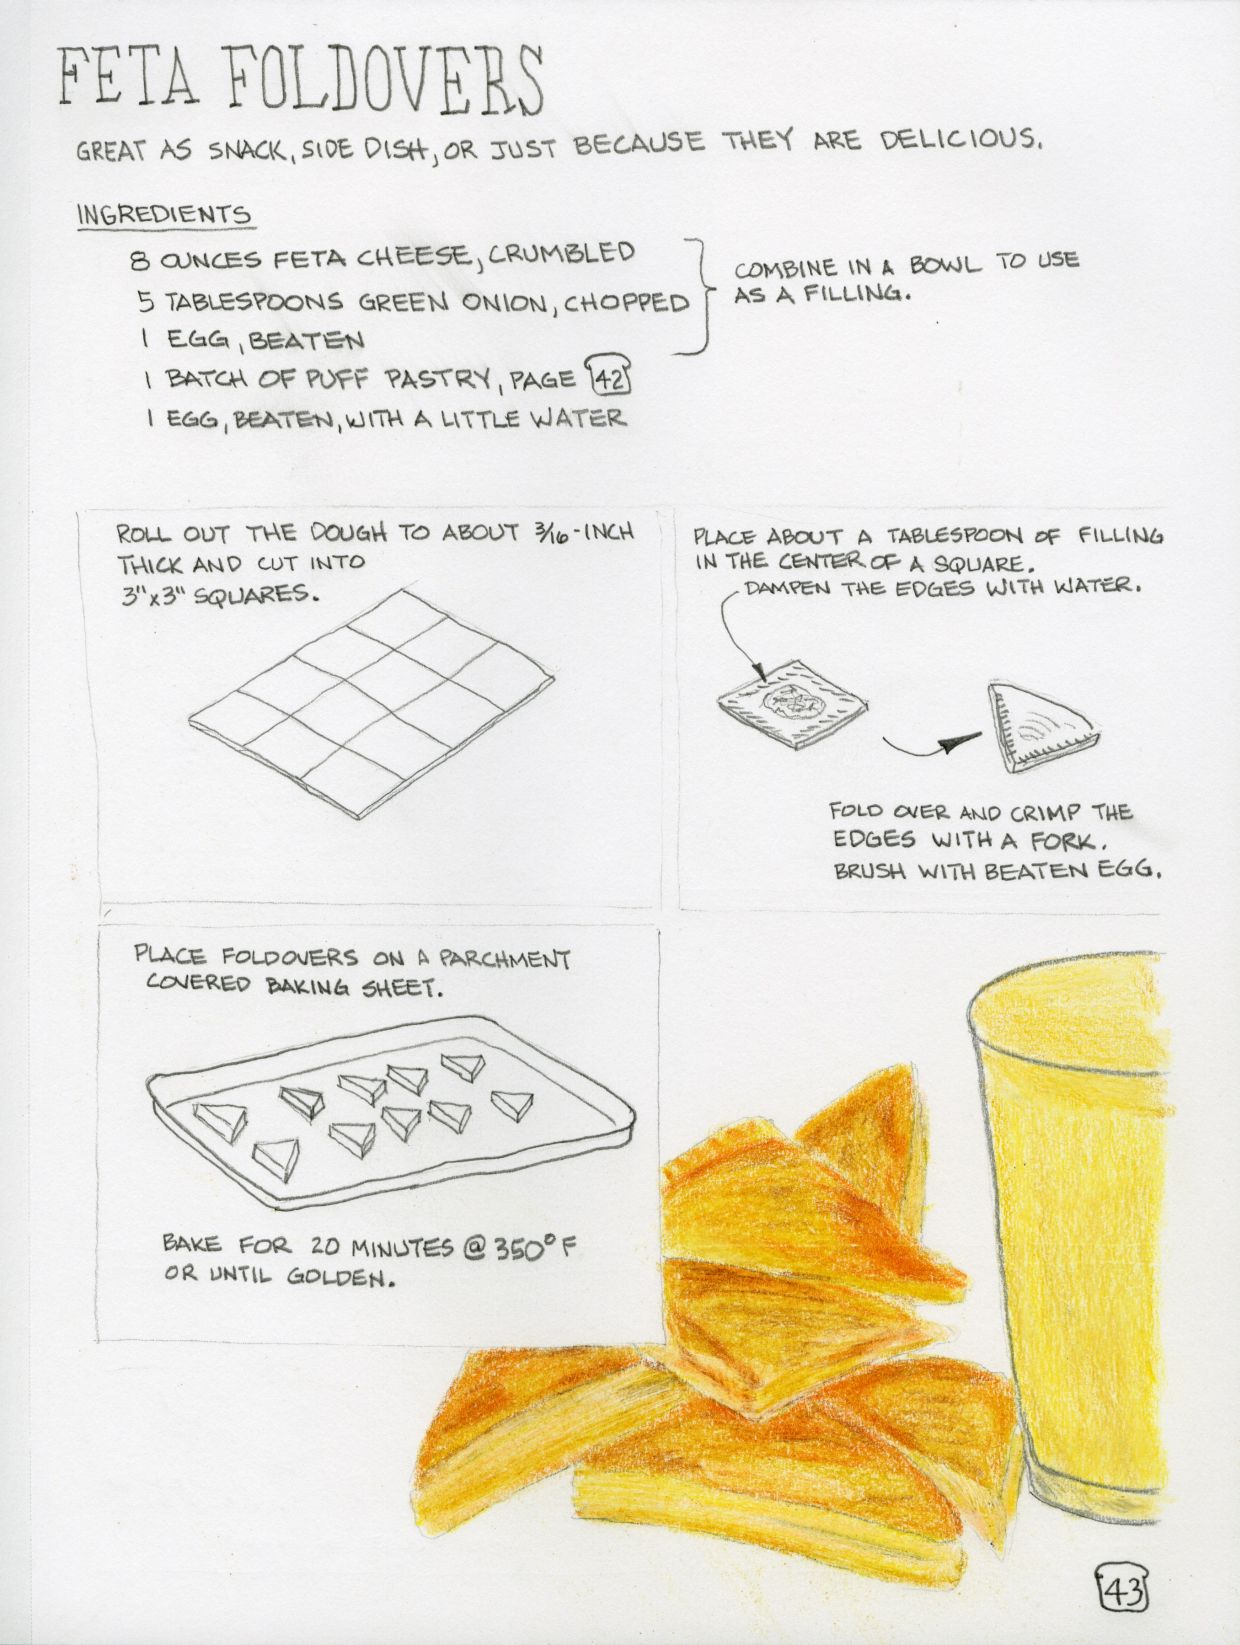 FETA FOLDOVERS
GREAT AS SNACK, SIDE DISH, OR JUST BECAUSE THEY ARE DELICIOUS.
INGREDIENTS
8 OUNCES FETA CHEESE, CRUMBLED
5 TABLESPOONS GREEN ONION, CHOPPED
1 EGG, BEATEN
COMBINE IN A BOWL TO USE
AS A FILLING.
1 BATCH OF PUFF PASTRY, PAGE 42
1 EGG, BEATEN, WITH A LITTLE WATER
ROLL OUT THE DOUGH TO ABOUT 3/16-INCH
THICK AND CUT INTO
3"x3" SQUARES.
PLACE ABOUT A TABLESPOON OF FILLING
IN THE CENTER OF A SQUARE.
DAMPEN THE EDGES WITH WATER.
FOLD OVER AND CRIMP THE
EDGES WITH A FORK.
BRUSH WITH BEATEN EGG.
PLACE FOLDOVERS ON A PARCHMENT
COVERED BAKING SHEET.
BAKE FOR 20 MINUTES @ 350°F
OR UNTIL GOLDEN.
43